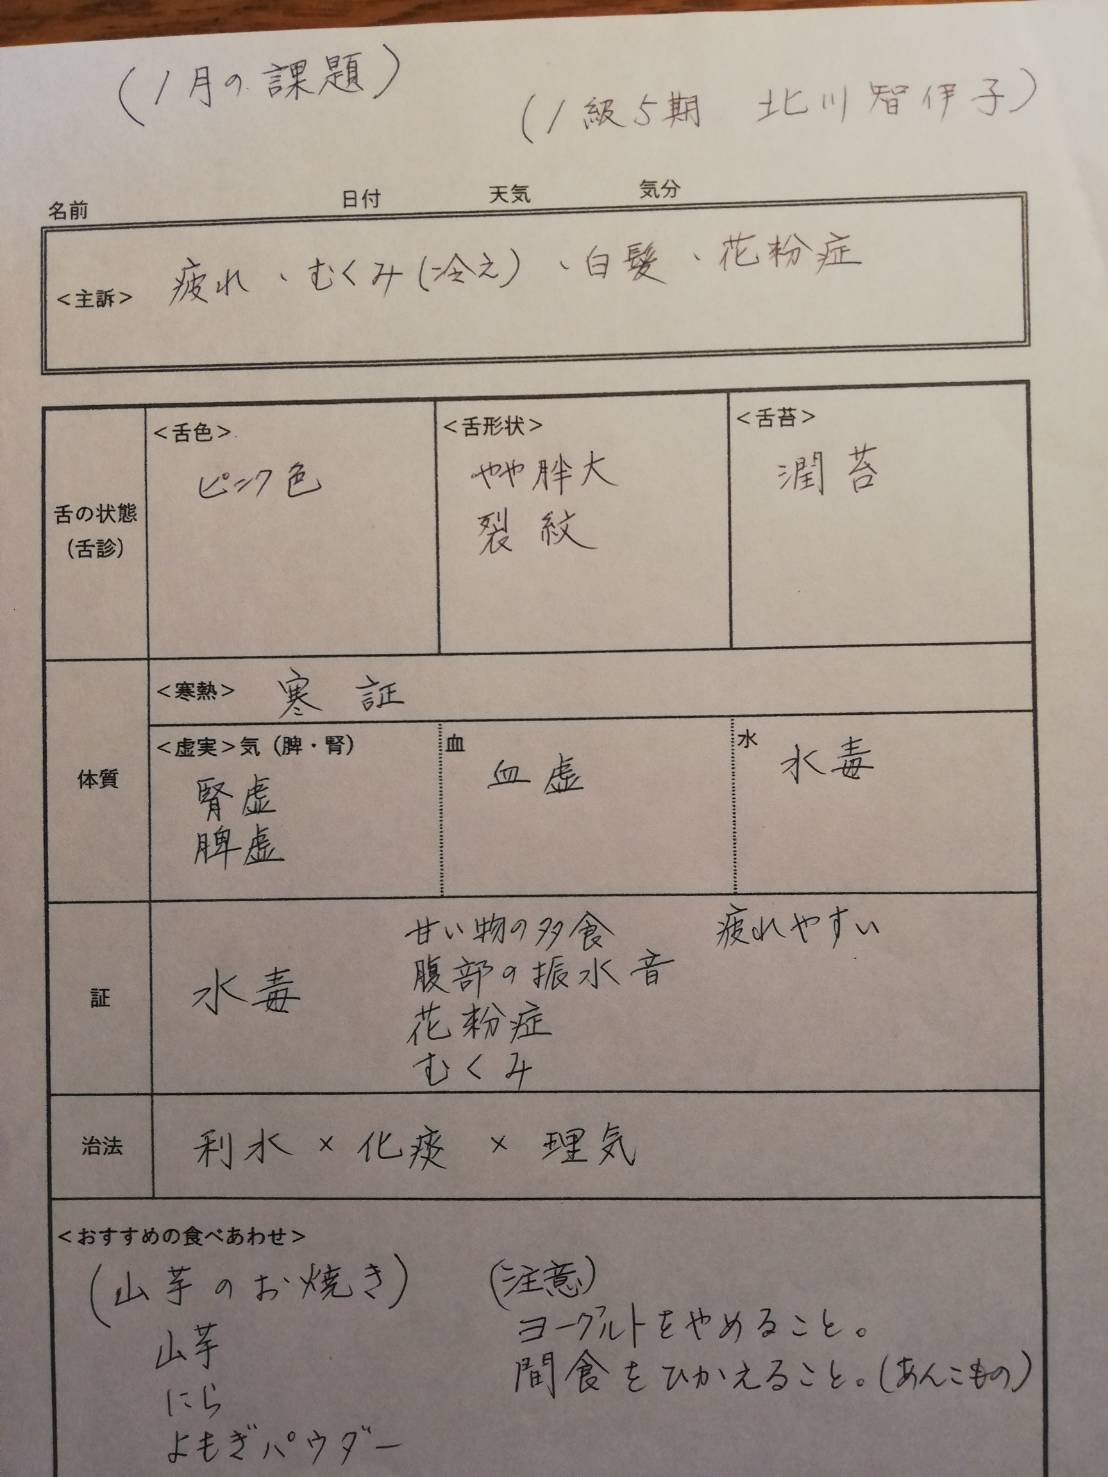 (1月の課題)
(1級5期 北川智伊子)
名前 日付 天気 気分
<主訴> 疲れ、むくみ(冷え)、白髪、花粉症
舌の状態
(舌診)
<舌色>
ピンク色
<舌形状>
やや胖大
裂紋
<舌苔>
潤苔
体質
<寒熱> 寒証
<虚実>気(脾・腎)
腎虚
脾虚
血
血虚
水
水毒
証
水毒
甘い物の多食 疲れやすい
腹部の振水音
花粉症
むくみ
治法
利水×化痰×理気
<おすすめの食べあわせ>
(山芋のお焼き)
山芋
にら
よもぎパウダー
(注意)
ヨーグルトをやめること。
間食をひかえること。(あんこもの)